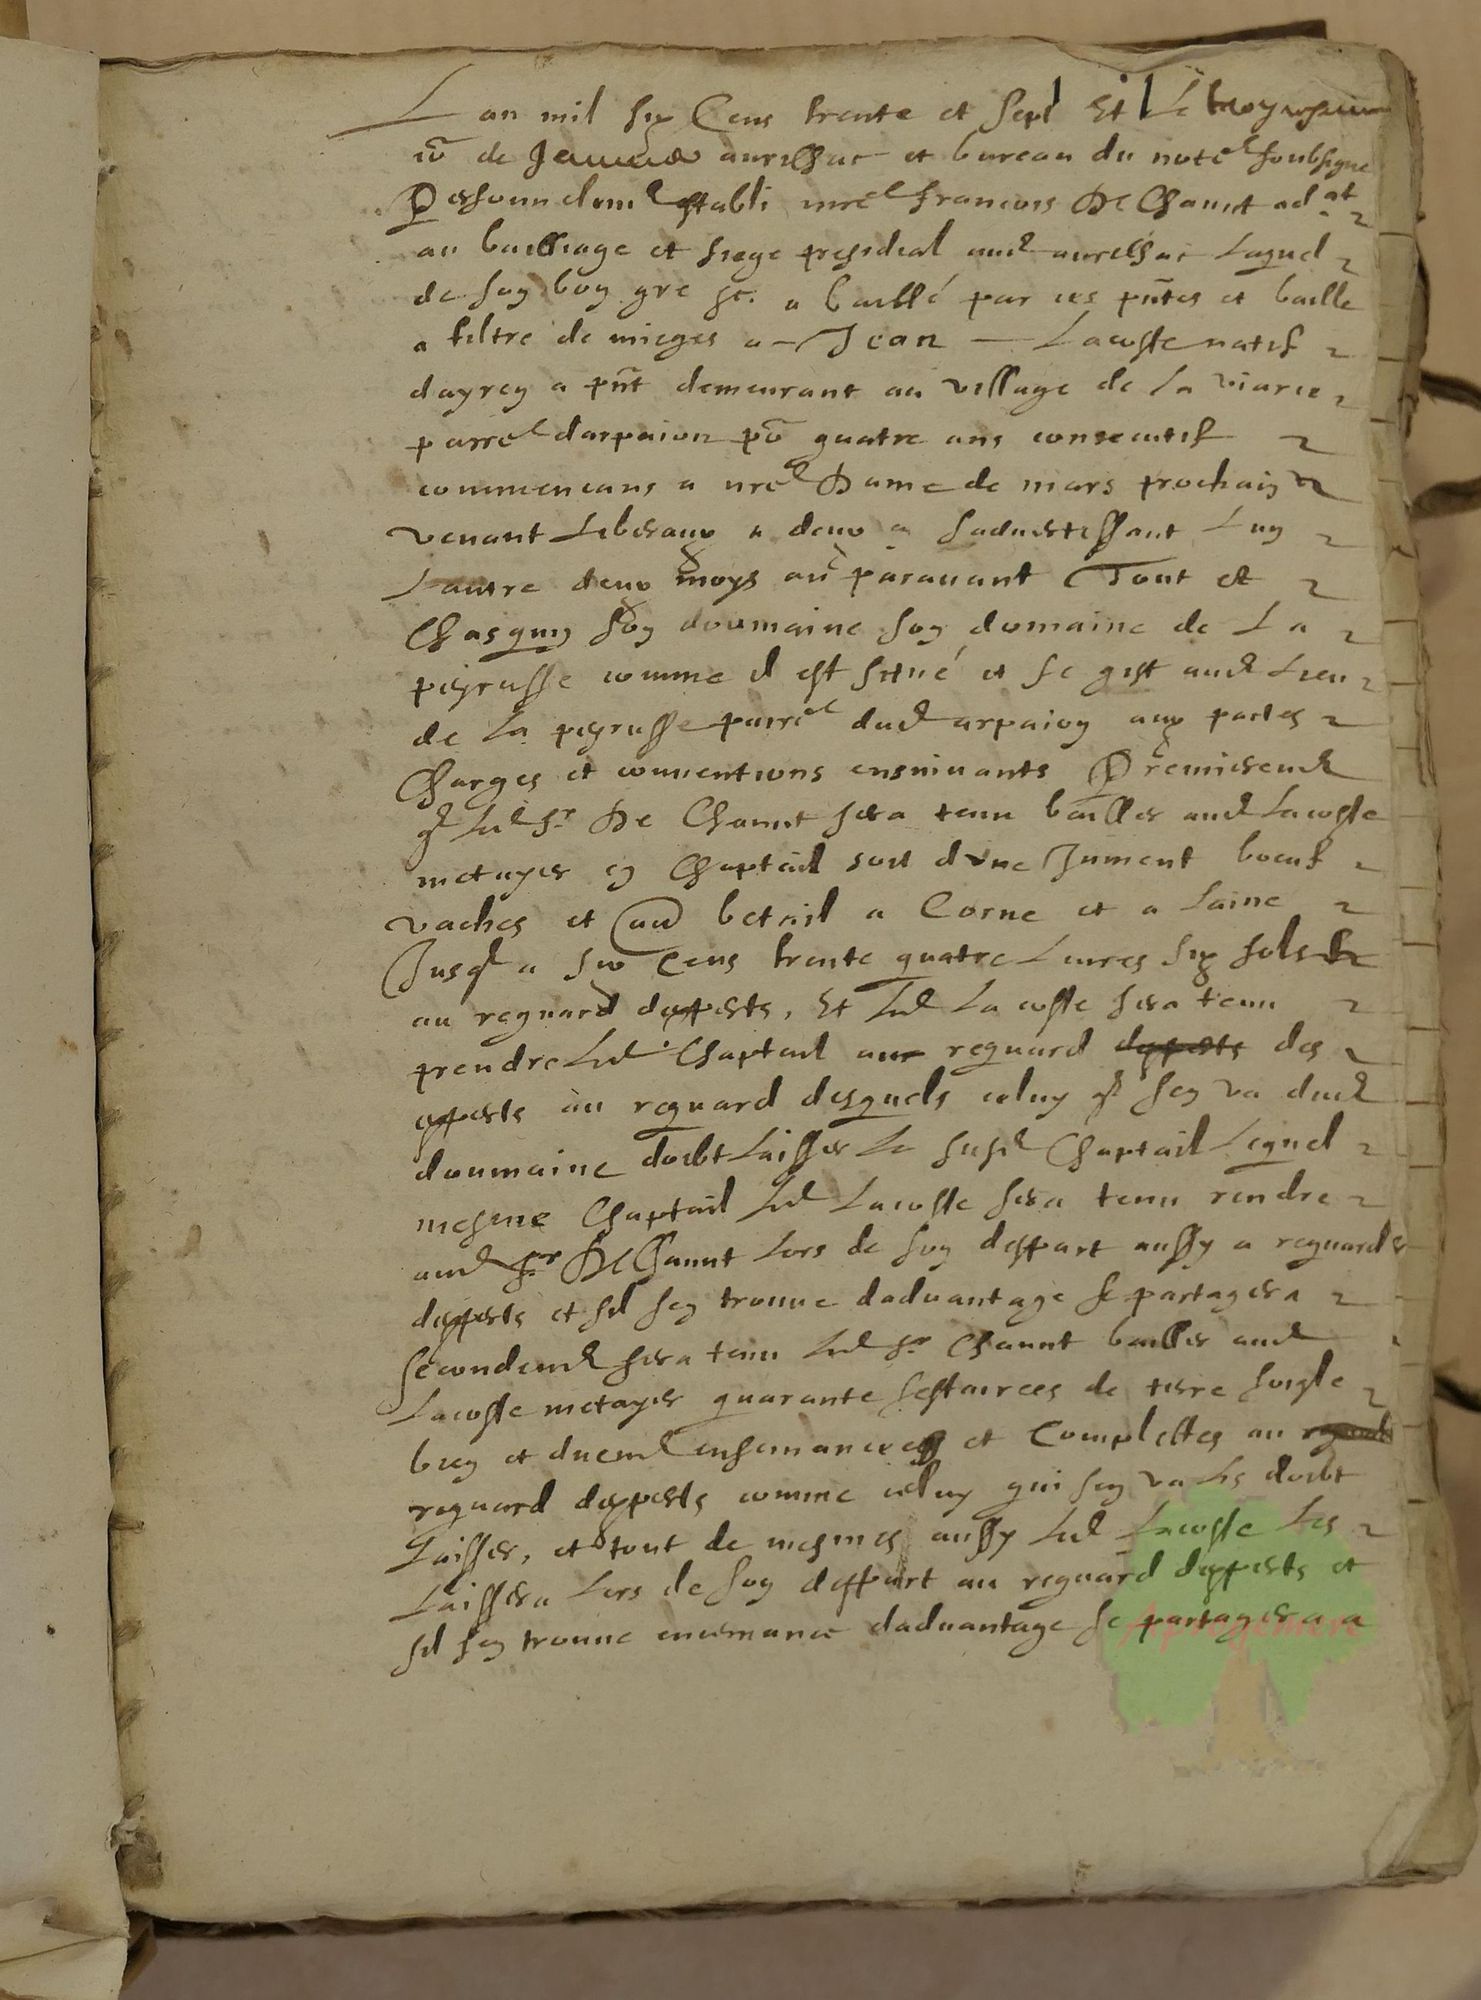 L an mil six Cens trente et sept Et Le troysiesme
jor de Janvier aurilhac et bureau du notere soubsigne
Personnelemt establi mre francois De Chaunt ad at
au bailliage et siege presidial aud aurelhac Lequel
de soy boy gre sc. a baillé par ces pntes et baille
a tiltre de mieges a - Jean - Lacoste natif
dayrey a pnt demeurant au village de la viarie
parre darpaion po quatre ans consecutif
commencans a nre Dame de mars prochain
venant Liberaux a deux a sadvertissant Luy
Lautre deux moys au paravant Tout et
Chasquy soy doumaine soy domaine de La
peyrusse comme il est situé et se gist aud Lieu
de La peyrusse parre dud arpaioy aux pactes
Charges et conventions ensuivants Premieremt
q Led Sr De Chaunt sera tenu bailler aud Lacoste
metayer ey Chaptail soit dune Jument boeuf
vaches et au betail a Corne et a Laine
Jusq a six Cens trente quatre Livres six sols
au reguard dexperts, Et Led La coste sera tenu
prendre Led Chaptail au reguard dexperts des
experts au reguard desquels celuy q sey va dud
doumaine doibt Laisser Le susd Chaptail Lequel
mesme Chaptail Led Lacoste sera tenu rendre
aud Sr De Chaunt Lors de soy despart aussy a reguard
dexperts et sil sey trouve dadvantage se partagera
secondemt sera tenu Led Sr Chaunt bailler aud
Lacoste metayer quarante sestairees de terre soigle
biey et duemt ensemancees et Complettes au
reguard dexperts comme celuy qui sey va Les doibt
Laisser, et tout de mesmes aussy Led Lacoste Les
Laissera Lors de soy despart au reguard dexperts et
sil sey trouve ensemance dadvantage se partagera a
Aprogemere